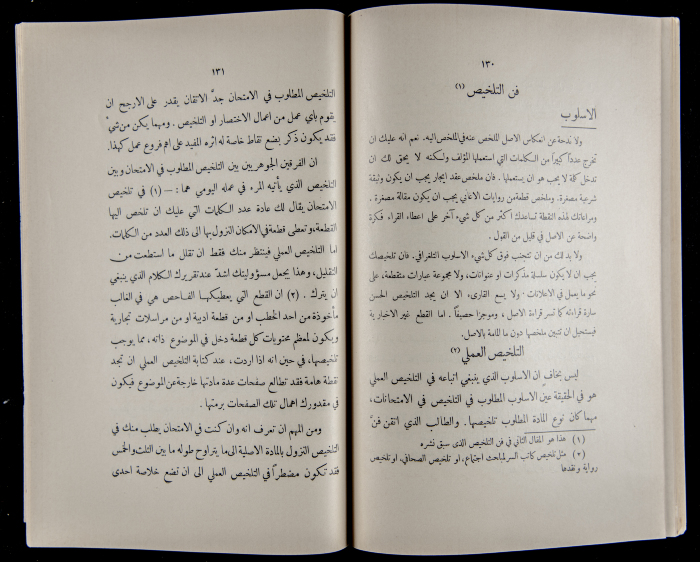 ١٣٠
فن التلخيص (١)
الاسلوب
ولا ندحة عن انعكاس الاصل الملخص عنه في الملخص اليه. نعم انه عليك ان
تخرج عدداً كبيراً من الكلمات التي استعملها المؤلف ولكنه لا يحق لك ان
تدخل كلمة لا يجب هو ان يستعملها. فان ملخص عقد ايجار يجب ان يكون وثيقة
شرعية مصغرة. وملخص قطعة من روايات الاغاني يجب ان يكون مقالة مصغرة.
ومراعاتك لهذه النقطة تساعدك اكثر من كل شيء آخر على اعطاء القراء فكرة
واضحة عن الاصل في قليل من القول.
ولا بد لك من ان تتجنب فوق كل شيء الاسلوب التلغرافي. فان تلخيصك
يجب ان لا يكون سلسلة مذكرات او عنوانات، ولا مجموعة عبارات متقطعة، على
نحو ما يعمل في الاعلانات. ولا يسع القارىء الا ان يجد التلخيص الحسن
سارة قراءته كما تسر قراءة الاصل، وموجزا حصيفاً. اما القطع غير الاخبارية
فيستحيل ان تتبين ملخصها دون ما المامة بالاصل.
التلخيص العملي (٢)
ليس بخاف ان الاسلوب الذي ينبغي اتباعه في التلخيص العملي
هو في الحقيقة عين الاسلوب المطلوب في التلخيص في الامتحانات،
مهما كان نوع المادة المطلوب تلخيصها. والطالب الذي اتقن فنَّ
(١) هذا هو المقال الثاني في فن التلخيص الذى سبق نشره
(٢) مثل تلخيص كاتب السر لمباحث اجتماع، او تلخيص الصحافي، او تلخيص
رواية ونقدها
١٣١
التلخيص المطلوب في الامتحان جدَّ الاتقان يقدر على الارجح ان
يقوم باي عمل من اعمال الاختصار او التلخيص. ومهما يكن من شيءٍ
فقد يكون ذكر بضع نقاط خاصة له اثره المفيد على اهم فروع عمل كهذا.
ان الفرقين الجوهريين بين التلخيص المطلوب في الامتحان وبين
التلخيص الذي يأتيه المرء في عمله اليومي هما: — (١) في تلخيص
الامتحان يقال لك عادة عدد الكلمات التي عليك ان تلخص اليها
القطعة، وتعطى قطعة في الامكان النزول بها الى ذلك العدد من الكلمات.
اما التلخيص العملي فينتظر منك فقط ان تقلل ما استطعت من
التقليل، وهذا يجعل مسؤوليتك اشدّ عند تقريرك الكلام الذي ينبغي
ان يترك. (٢) ان القطع التي يعطيكها الفاحص هي في الغالب
مأخوذة من احد الخطب او من قطعة ادبية او من مراسلات تجارية
ويكون لمعظم محتويات كل قطعة دخل في الموضوع ذاته، مما يوجب
تلخيصها، في حين انه اذا اردت، عند كتابة التلخيص العملي ان تجد
نقطة هامة فقد تطالع صفحات عدة مادتها خارجة عن الموضوع فيكون
في مقدورك اهمال تلك الصفحات برمتها.
ومن المهم ان تعرف انه وان كنت في الامتحان يطلب منك في
التلخيص النزول بالمادة الاصلية الى ما يتراوح طوله ما بين الثلث والخمس
فقد تكون مضطراً في التلخيص العملي الى ان تضع خلاصة احدى